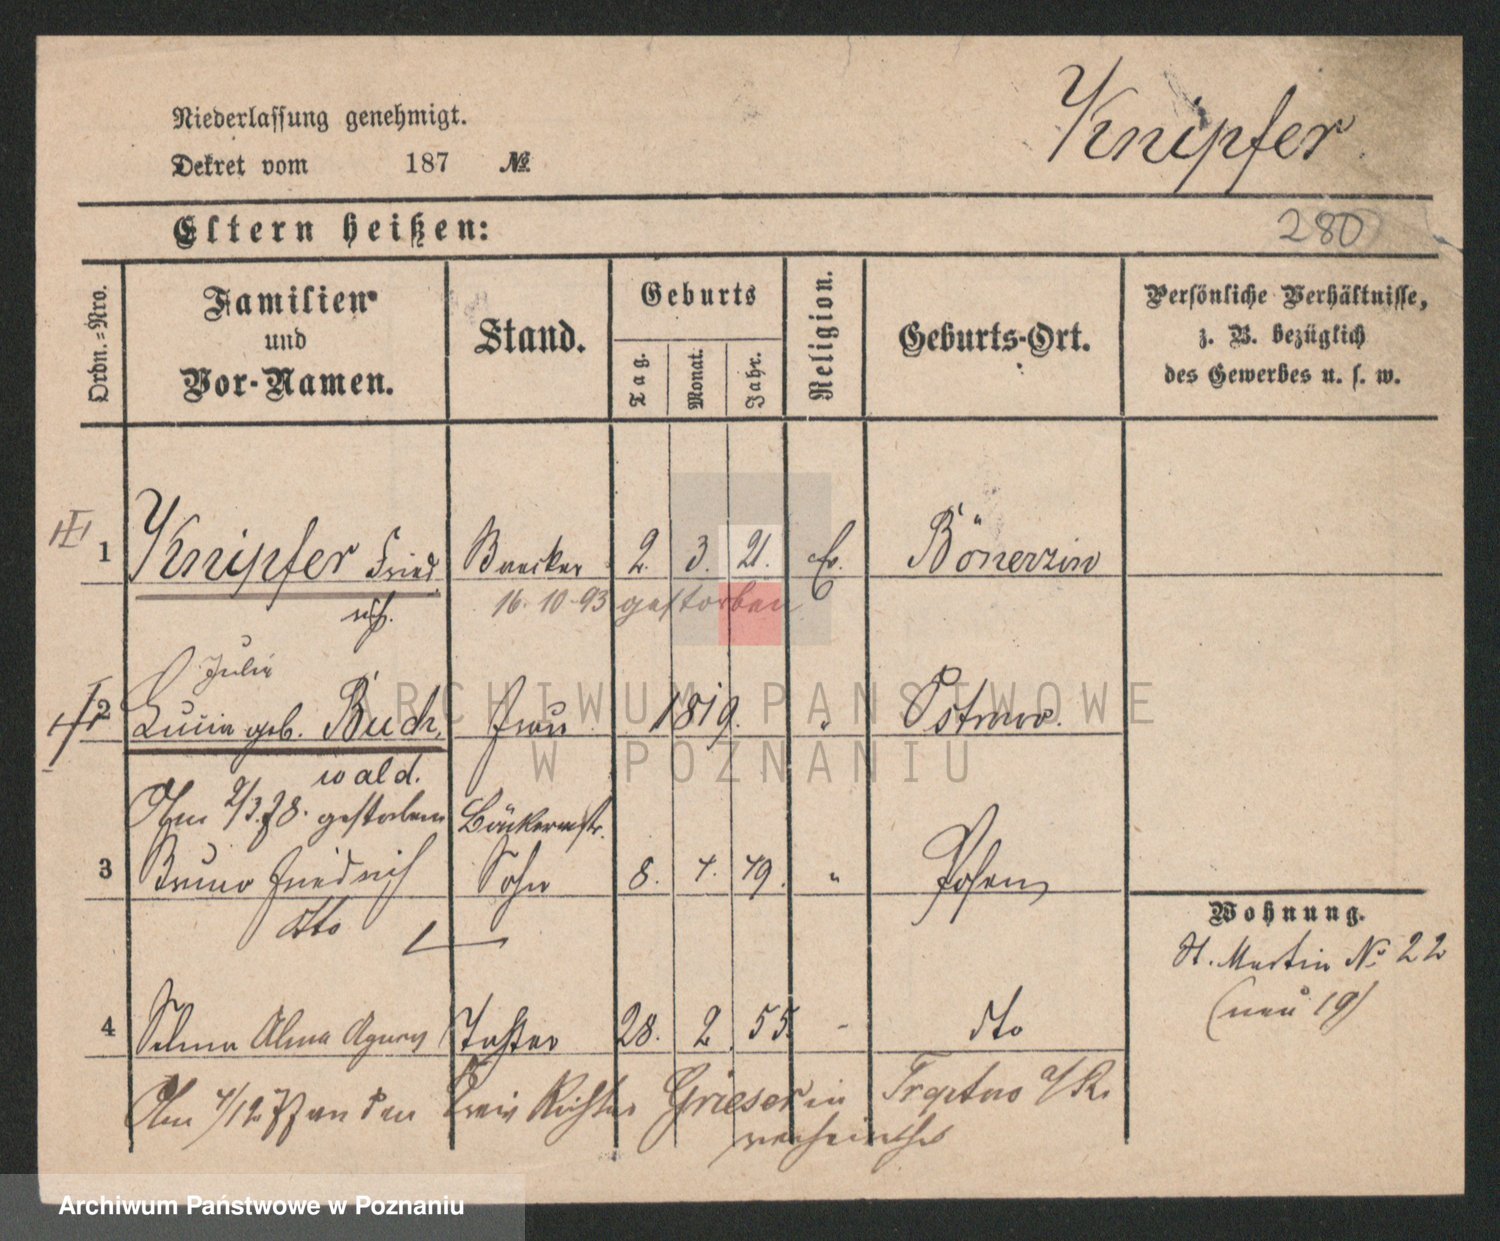 Niederlassung genehmigt.
Knipfer
Dekret vom 187 №
Eltern heißen:
280
Ordn.-Nro.
Familien-
und
Vor-Namen.
Stand.
Geburts
Tag.
Monat.
Jahr.
Religion.
Geburts-Ort.
Persönliche Verhältnisse,
z. B. bezüglich
des Gewerbes u. s. w.
1 Knipfer Fried 2. 3. 21. Ev.
rich.
16. 10 93 gestorben
Julie
2 geb. Buch Frau 1819. " Ostrowo.
wald.
Am 2/3.78. gestorben Bäckermstr.
3 Bruno Friedrich Sohn 8. 4. 49. " Posen
dto
4 Selma Alma Agnes Tochter 28. 2. 55. - dto
Am 4/12 77 an den Kreis Richter Grieser in
verheirathet
Wohnung.
St. Martin No 22
(neu 19)
ARCHIWUM PAŃSTWOWE
W POZNANIU
Archiwum Państwowe w Poznaniu